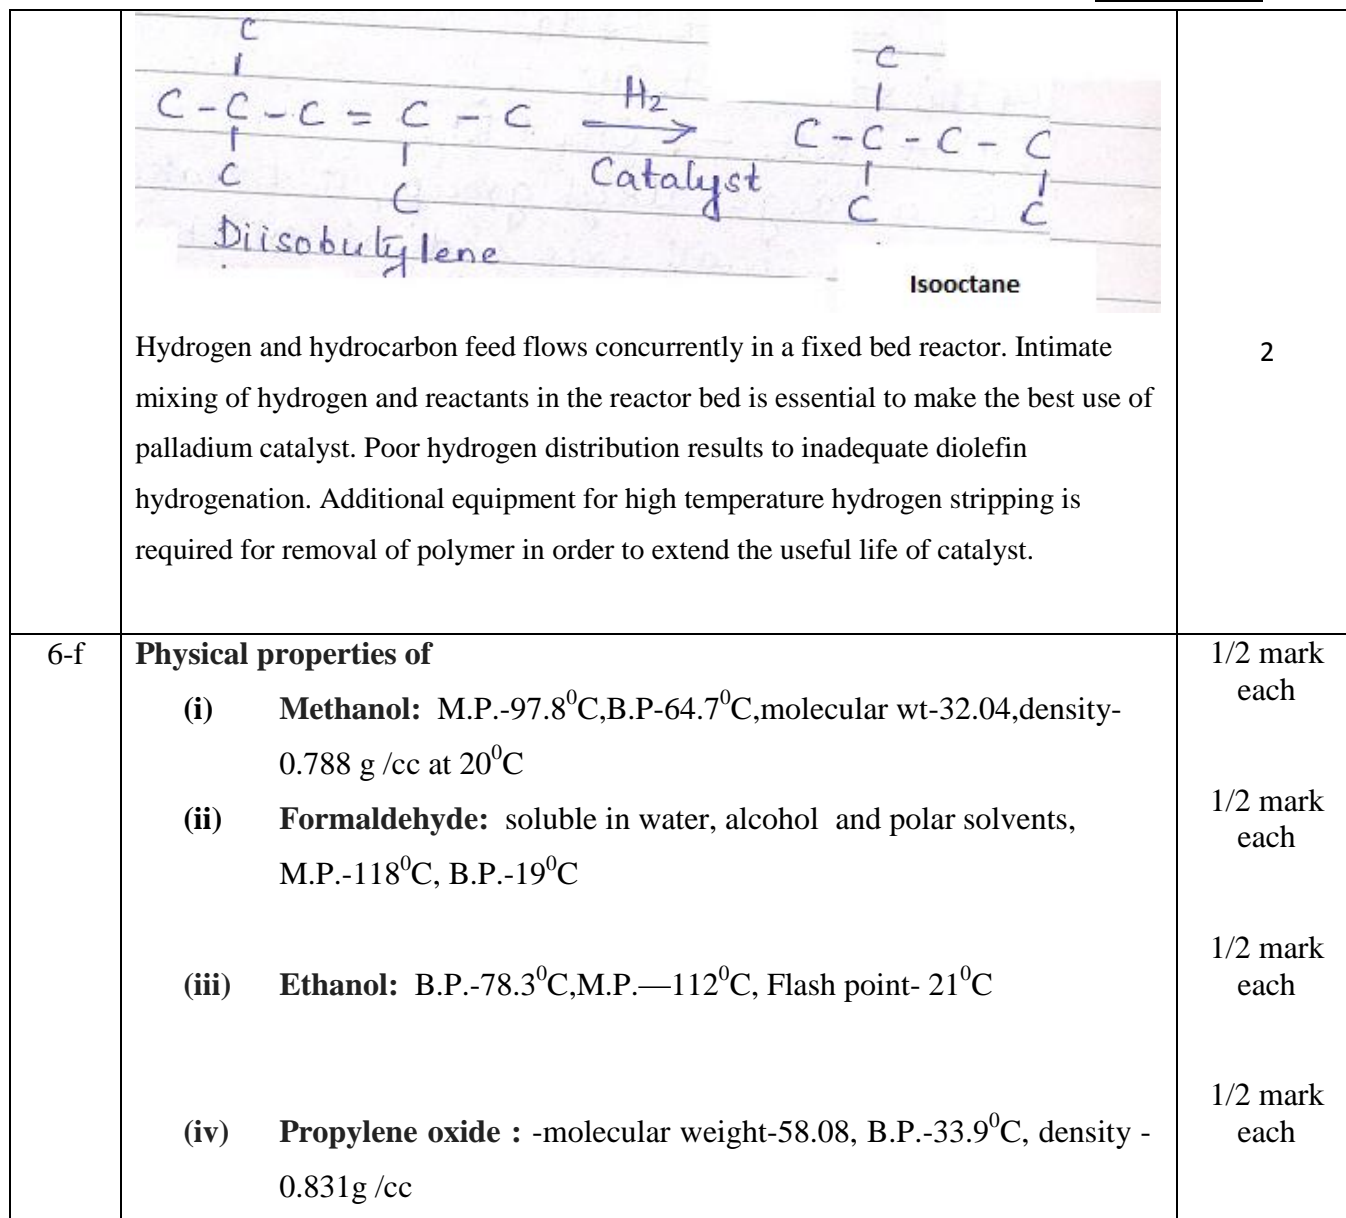 C C
C - C - C = C - C H2 C - C - C - C
C C Catalyst C C
Diisobutylene
Isooctane
Hydrogen and hydrocarbon feed flows concurrently in a fixed bed reactor. Intimate
2
mixing of hydrogen and reactants in the reactor bed is essential to make the best use of
palladium catalyst. Poor hydrogen distribution results to inadequate diolefin
hydrogenation. Additional equipment for high temperature hydrogen stripping is
required for removal of polymer in order to extend the useful life of catalyst.
6-f Physical properties of 1/2 mark
each
(i) Methanol: M.P.-97.8⁰C,B.P-64.7⁰C,molecular wt-32.04,density-
0.788 g /cc at 20⁰C
1/2 mark
(ii) Formaldehyde: soluble in water, alcohol and polar solvents, each
M.P.-118⁰C, B.P.-19⁰C
1/2 mark
(iii) Ethanol: B.P.-78.3⁰C,M.P.—112⁰C, Flash point- 21⁰C each
1/2 mark
(iv) Propylene oxide : -molecular weight-58.08, B.P.-33.9⁰C, density - each
0.831g /cc